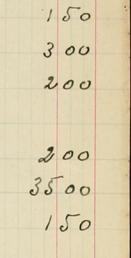 150
300
200
200
3500
150